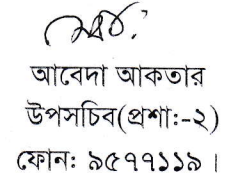 আবেদা আকতার
উপসচিব(প্রশা:-২)
ফোন: ৯৫৭৭১১৯।